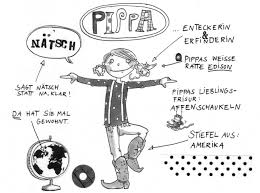 PIPPA
NÄTSCH
SAGT NÄTSCH
STATT NA, KLAR!
DA HAT SIE MAL
GEWOHNT.
... ENTECKERIN
& ERFINDERIN
PIPPAS WEISSE
RATTE EDISON
PIPPAS LIEBLINGS-
FRISUR:
AFFENSCHAUKELN
STIEFEL AUS:
AMERIKA